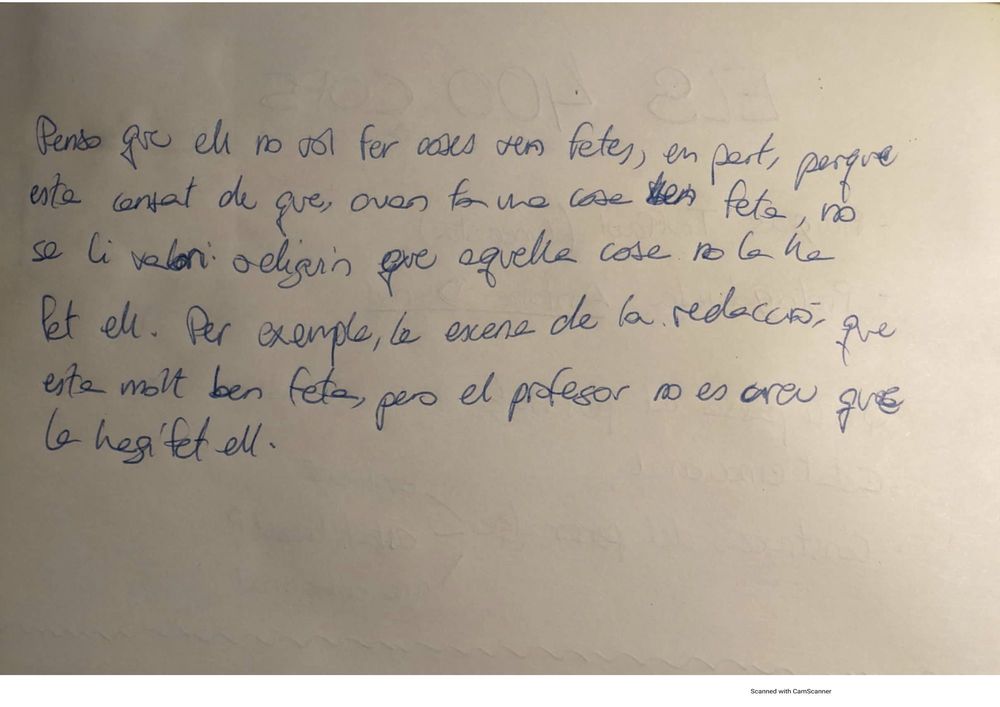 Penso que ell no vol fer coses ven fetes, en part, perque
esta cansat de que, quan fa una cosa ben feta, no
se li valori o diguin que aquella cosa no la ha
fet ell. Per exemple, la escena de la redacció, que
esta molt ben feta, pero el profesor no es creu que
la hagi fet ell.
ELS 400 COPS
Scanned with CamScanner